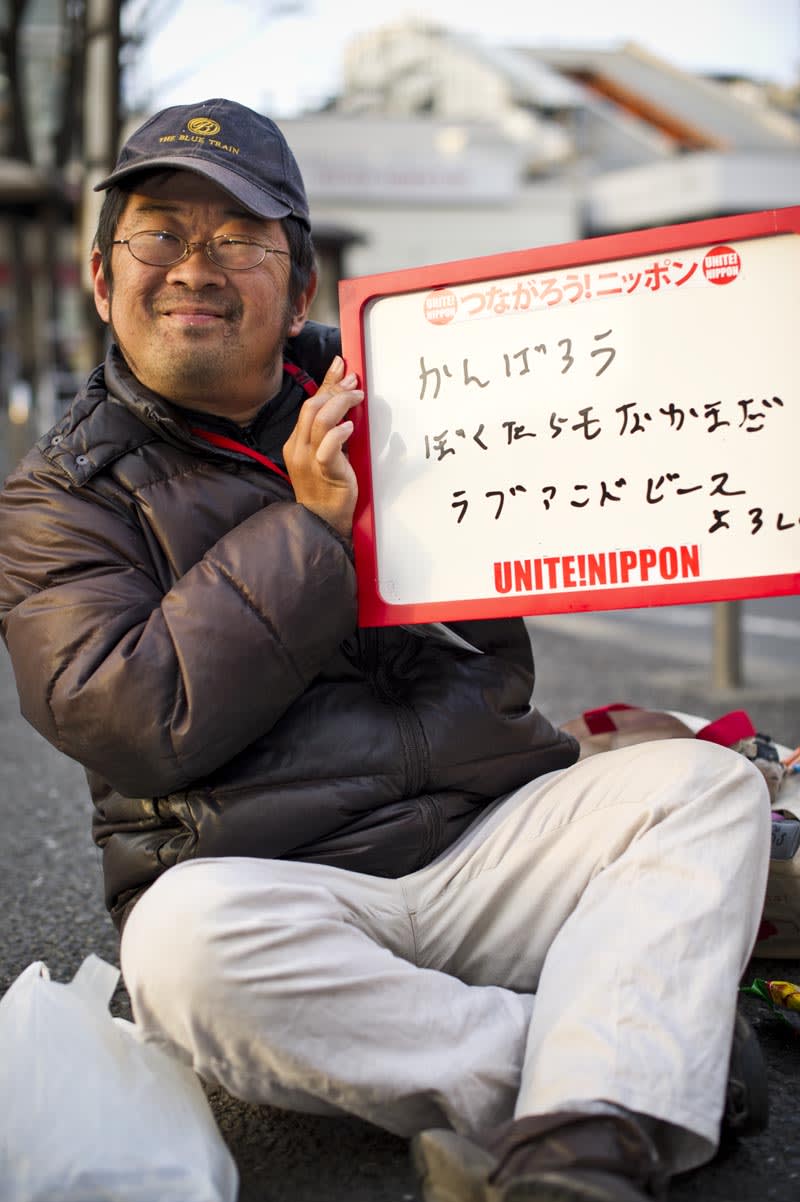 THE BLUE TRAIN
UNITE! NIPPON つながろう!ニッポン UNITE! NIPPON
かんばろう
ぼくたらもなかまだ
ラブアンドピース
よろし
UNITE!NIPPON